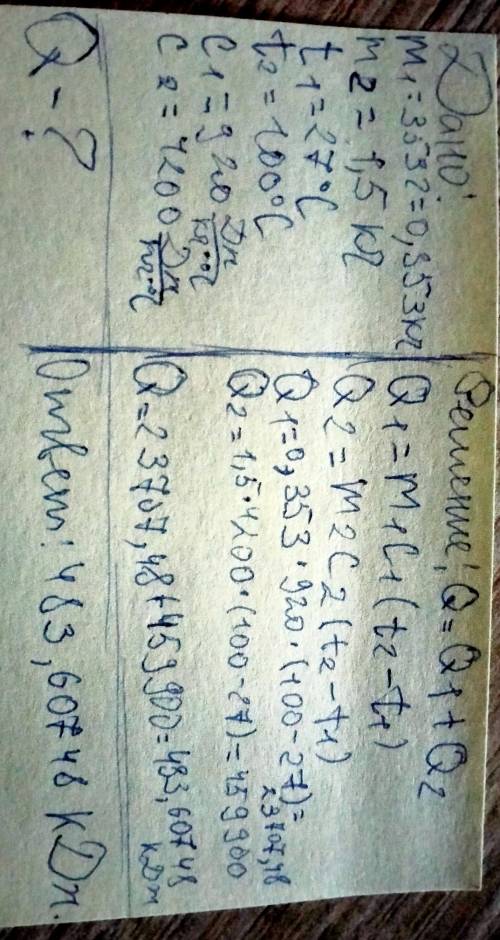 Дано:
m1=353г=0,353кг
m2=1,5 кг
t1=27°C
t2=100°C
c1=920 Дж/кг·°C
c2=4200 Дж/кг·°C
Q-?
Решение: Q=Q1+Q2
Q1=m1c1(t2-t1)
Q2=m2c2(t2-t1)
Q1=0,353·920·(100-27)=
23707,48
Q2=1,5·4200·(100-27)=459900
Q=23707,48+459900=483,60748
кДж
Ответ: 483,60748 кДж.